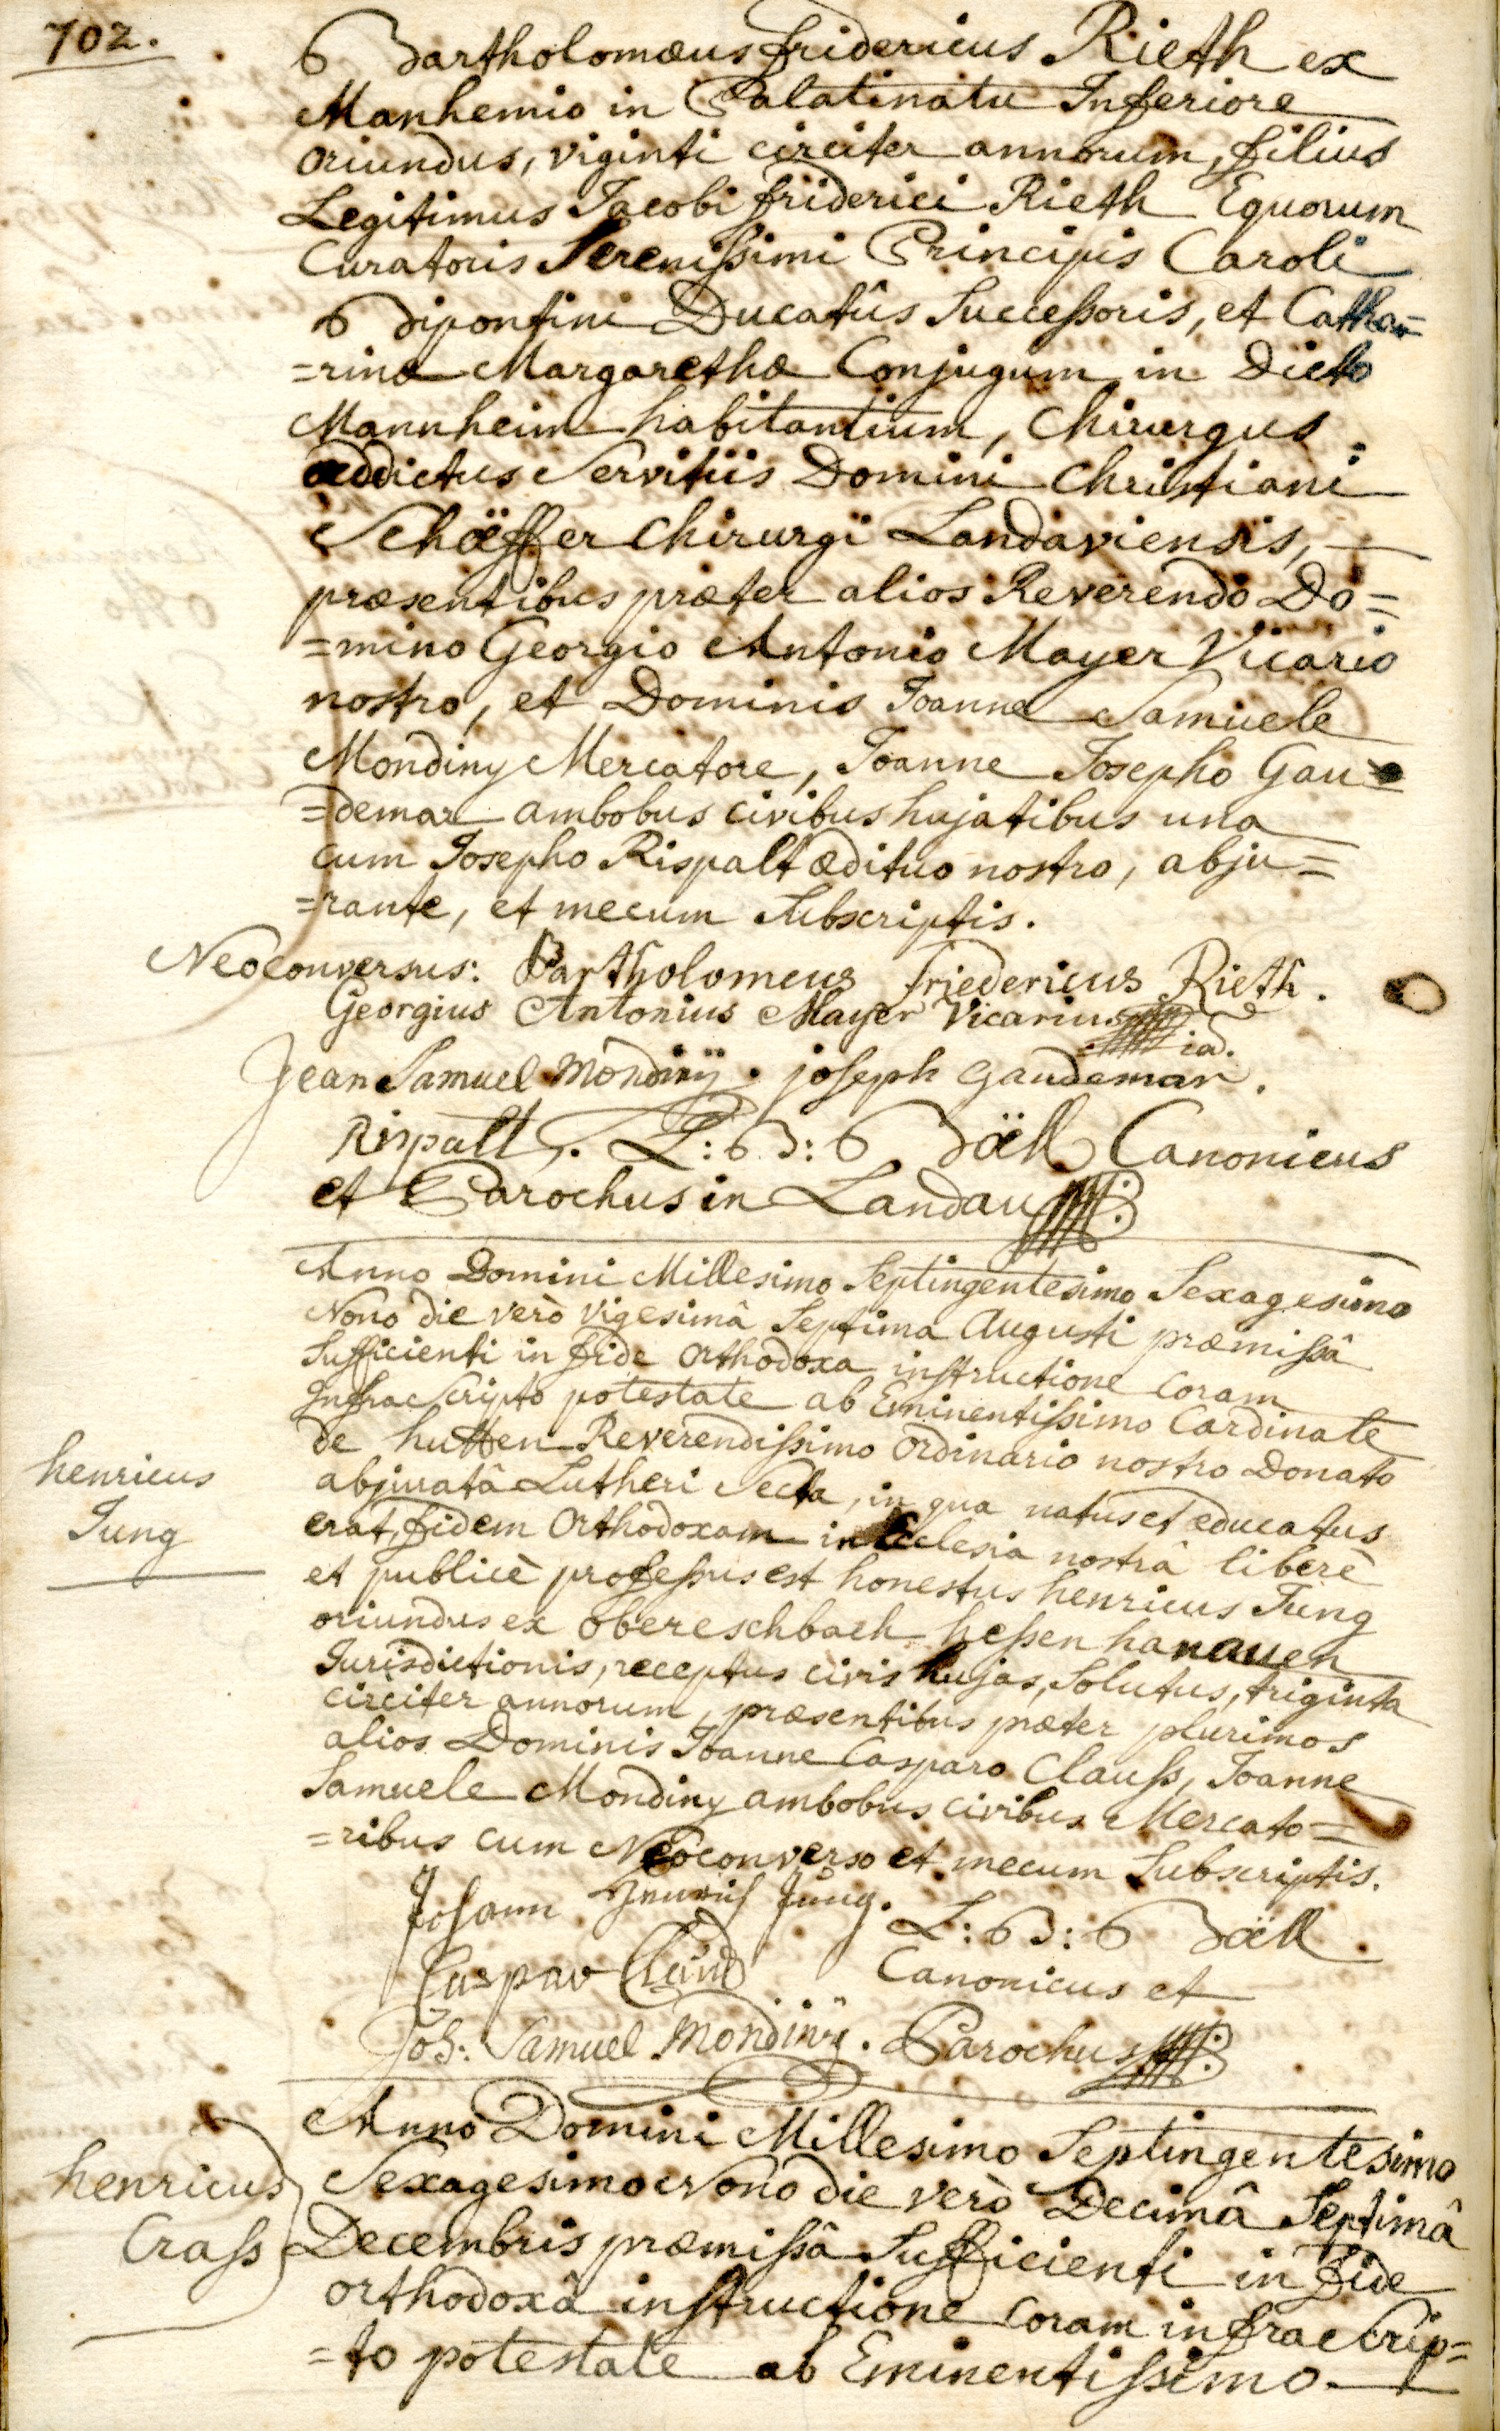 702.
Bartholomæus Fridericus Rieth ex
Manhemio in Palatinatu Inferiore
oriundus, viginti circiter annorum, filius
Legitimus Jacobi Friderici Rieth Equorum
Curatoris Serenissimi Principis Caroli
Bipontini Ducatûs Successoris, et Catha=
=rinæ Margarethæ Conjugum in Dicto
Mannheim habitantium, Chirurgus
addictus Servitiis Domini Christiani
Schæffer Chirurgi Landaviensis,
præsentibus præter alios Reverendo Do=
=mino Georgio Antonio Mayer Vicario
nostro, et Dominis Joanne Samuele
Mondiny Mercatore, Joanne Josepho Gau=
=demar ambobus civibus hujatibus una
cum Josepho Rispalt ædituo nostro, abju=
=rante, et mecum Subscriptis.
Neoconversus: Bartholomeus Friedericus Rieth.
Georgius Antonius Mayer Vicarius
Jean Samuel Mondiny. joseph gaudemar.
Rispalt. L: B: Bäll Canonicus
et Parochus in Landau
Anno Domini Millesimo Septingentesimo Sexagesimo
Nono die verò vigesimâ Septima Augusti præmissâ
Sufficienti in fide orthodoxa instructione coram
Infrascripto potestate ab Eminentissimo Cardinale
de hutten Reverendissimo ordinario nostro Donato
abjuratâ Lutheri Secta, in qua natus et educatus
erat, fidem orthodoxam in Ecclesia nostrâ liberè
et publicè professus est honestus henricus Jung
oriundus ex obereschbach hessen hanauen
Jurisdictionis, receptus civis hujas, Solutus, triginta
circiter annorum, præsentibus præter plurimos
alios Dominis Joanne Casparo Clauss, Joanne
Samuele Mondiny ambobus civibus Mercato=
=ribus cum Neoconverso et mecum Subscriptis.
henricus
Jung
Johann Henrich Jung.
L: B: Bäll
Caspar
Canonicus et
Joh: Samuel Mondiny. Parochus
Anno Domini Millesimo Septingentesimo
Sexagesimo Nono die verò Decimâ Septimâ
Decembris præmissâ Sufficienti in fide
orthodoxâ instructione coram infrascrip=
=to potestate ab Eminentissimo
henricus
Crass